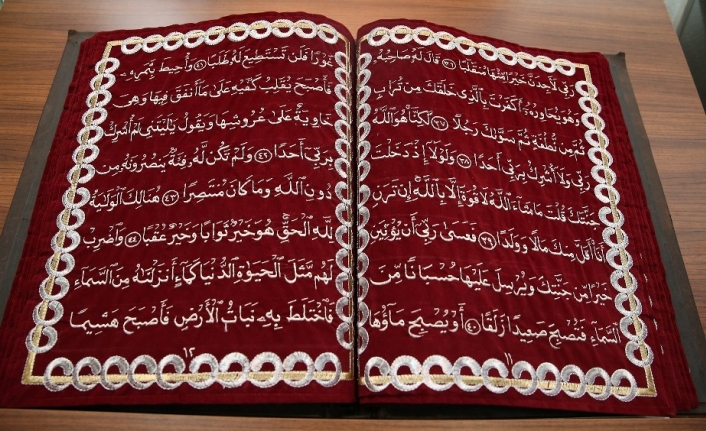 رَبِّي لَأَجِدَنَّ خَيْرًا مِّنْهَا مُنقَلَبًا ٣٦ قَالَ لَهُۥ صَاحِبُهُۥ
وَهُوَ يُحَاوِرُهُۥٓ أَكَفَرْتَ بِٱلَّذِى خَلَقَكَ مِن تُرَابٍ
ثُمَّ مِن نُّطْفَةٍ ثُمَّ سَوَّىٰكَ رَجُلًا ٣٧ لَّٰكِنَّا۠ هُوَ ٱللَّهُ
رَبِّى وَلَآ أُشْرِكُ بِرَبِّىٓ أَحَدًا ٣٨ وَلَوْلَآ إِذْ دَخَلْتَ
جَنَّتَكَ قُلْتَ مَا شَآءَ ٱللَّهُ لَا قُوَّةَ إِلَّا بِٱللَّهِ إِن تَرَنِ
أَنَا۠ أَقَلَّ مِنكَ مَالًا وَوَلَدًا ٣٩ فَعَسَىٰ رَبِّىٓ أَن يُؤْتِيَنِ
خَيْرًا مِّن جَنَّتِكَ وَيُرْسِلَ عَلَيْهَا حُسْبَانًا مِّنَ
ٱلسَّمَآءِ فَتُصْبِحَ صَعِيدًا زَلَقًا ٤٠ أَوْ يُصْبِحَ مَآؤُهَا
١١
غَوْرًا فَلَن تَسْتَطِيعَ لَهُۥ طَلَبًا ٤١ وَأُحِيطَ بِثَمَرِهِۦ
فَأَصْبَحَ يُقَلِّبُ كَفَّيْهِ عَلَىٰ مَآ أَنفَقَ فِيهَا وَهِىَ
خَاوِيَةٌ عَلَىٰ عُرُوشِهَا وَيَقُولُ يَٰلَيْتَنِى لَمْ أُشْرِكْ
بِرَبِّىٓ أَحَدًا ٤٢ وَلَمْ تَكُن لَّهُۥ فِئَةٌ يَنصُرُونَهُۥ مِن
دُونِ ٱللَّهِ وَمَا كَانَ مُنتَصِرًا ٤٣ هُنَالِكَ ٱلْوَلَٰيَةُ
لِلَّهِ ٱلْحَقِّ هُوَ خَيْرٌ ثَوَابًا وَخَيْرٌ عُقْبًا ٤٤ وَٱضْرِبْ
لَهُم مَّثَلَ ٱلْحَيَوٰةِ ٱلدُّنْيَا كَمَآءٍ أَنزَلْنَٰهُ مِنَ ٱلسَّمَآءِ
فَٱخْتَلَطَ بِهِۦ نَبَاتُ ٱلْأَرْضِ فَأَصْبَحَ هَشِيمًا
١٢